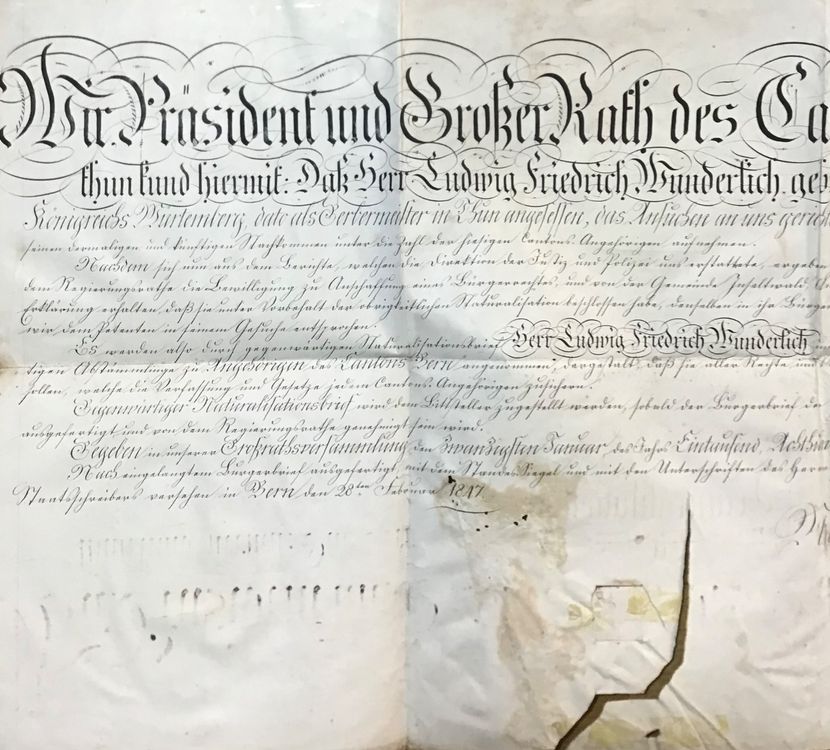 Wir Präsident und Großer Rath des Ca
thun kund hiermit: Daß Herr Ludwig Friedrich Wunderlich, geb
Königreichs Würtemberg, dato als Gerbermeister in Thun angesessen, das Ansuchen an uns gerich
seinen dermaligen und künftigen Nachkommen unter die Zahl der hiesigen Cantons-Angehörigen aufnehmen.
Nachdem sich uns aus dem Berichte, welchen die Direktion der Justiz und Polizei uns erstattete, ergeben
dem Regierungsrathe die Bewilligung zu Anschaffung eines Bürgerrechtes, und von der Gemeinde Iseltwald,
Erklärung erhalten, daß sie unter Vorbehalt der obrigkeitlichen Naturalisation beschlossen habe, denselben in ihr Bürger
wir dem Petenten in seinem Gesuche entsprochen.
Es werden also durch gegenwärtigen Naturalisationsbrief Herr Ludwig Friedrich Wunderlich
tigen Abstämmlinge zu Angehörigen des Cantons Bern angenommen, dergestalt, daß sie aller Rechte
sollen, welche die Verfassung und Gesetze jedem Cantons-Angehörigen zusichern.
Gegenwärtiger Naturalisationsbrief wird dem Bittsteller zugestellt werden, sobald der Bürgerbrief de
ausgefertigt und von dem Regierungsrathe genehmigt sein wird.
Gegeben in unserer Großrathsversammlung den zwanzigsten Januar des Jahrs Eintausend, Achthun
Nach eingelangtem Bürgerbrief ausgefertigt, mit dem Standes-Siegel und mit den Unterschriften des Herrn
Staatsschreibers versehen in Bern den 28ten Februar 1847.